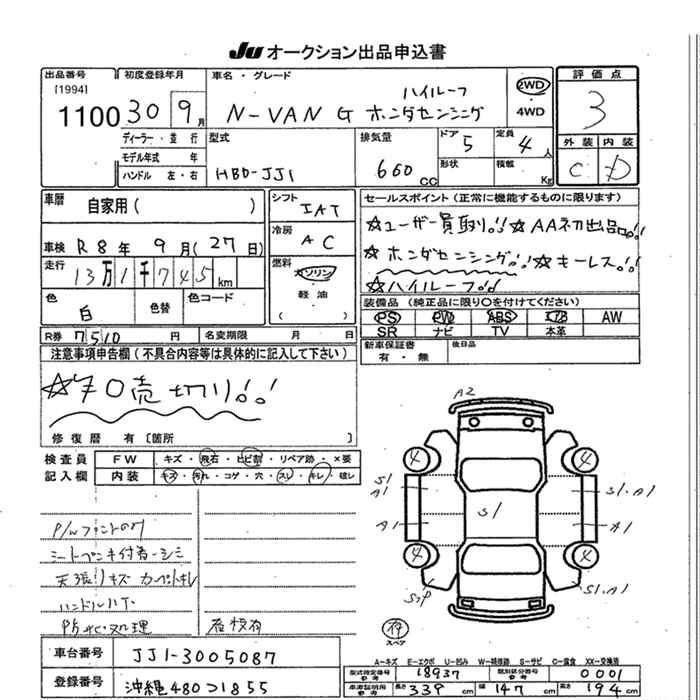 JU オークション出品申込書
出品番号 初度登録年月 車名・グレード 評価点
[1994] ハイルーフ 2WD
1100 30 9月 N-VAN G ホンダセンシング 4WD 3
ディーラー・並行 型式 排気量 ドア 定員 外装 内装
モデル年式 年 5 4人
ハンドル 左・右 HBD-JJ1 660cc 形状 積載 Kg C D
車歴 自家用( ) シフト IAT セールスポイント(正常に機能するものに限ります)
☆ユーザー買取り!! ☆AA初出品!!
車検 R8年9月(27日) 冷房 AC ☆ホンダセンシング!! ☆キーレス!!
走行 13万1千745km 燃料 ガソリン ☆ハイルーフ!!
軽油
色 白 色替 色コード ( ) 装備品(純正品に限り○を付けてください)
PS PW ABS エアB AW
R券 7510円 名変期限 月 日 SR ナビ TV 本革
注意事項申告欄(不具合内容等は具体的に記入して下さい) 新車保証書 後日品
有・無
売切り!!
修復歴 有〔箇所 〕 A2
検査員 FW キズ・飛石・ヒビ割・リペア跡・×要
記入欄 内装 キズ・汚れ・コゲ・穴・スレ・キレ・破レ
4 4
S1 A1 S1.A1
A1 S1 A1
P/Wフロントのみ
シートペンキ付着・シミ 4 4
天張りキズ カーペットキレ
S2P S1.A1
ハンドルハゲ
防水処理
スペア
車台番号 JJ1-3005087 A-キズ E-エクボ U-凹み W-補修跡 S-サビ C-腐食 XX-交換済
型式指定番号 参考 18937 類別区分番号 参考 0001
登録番号 沖縄480つ1855 車庫証明用 参考 長さ 339cm 幅 147cm 高さ 194cm